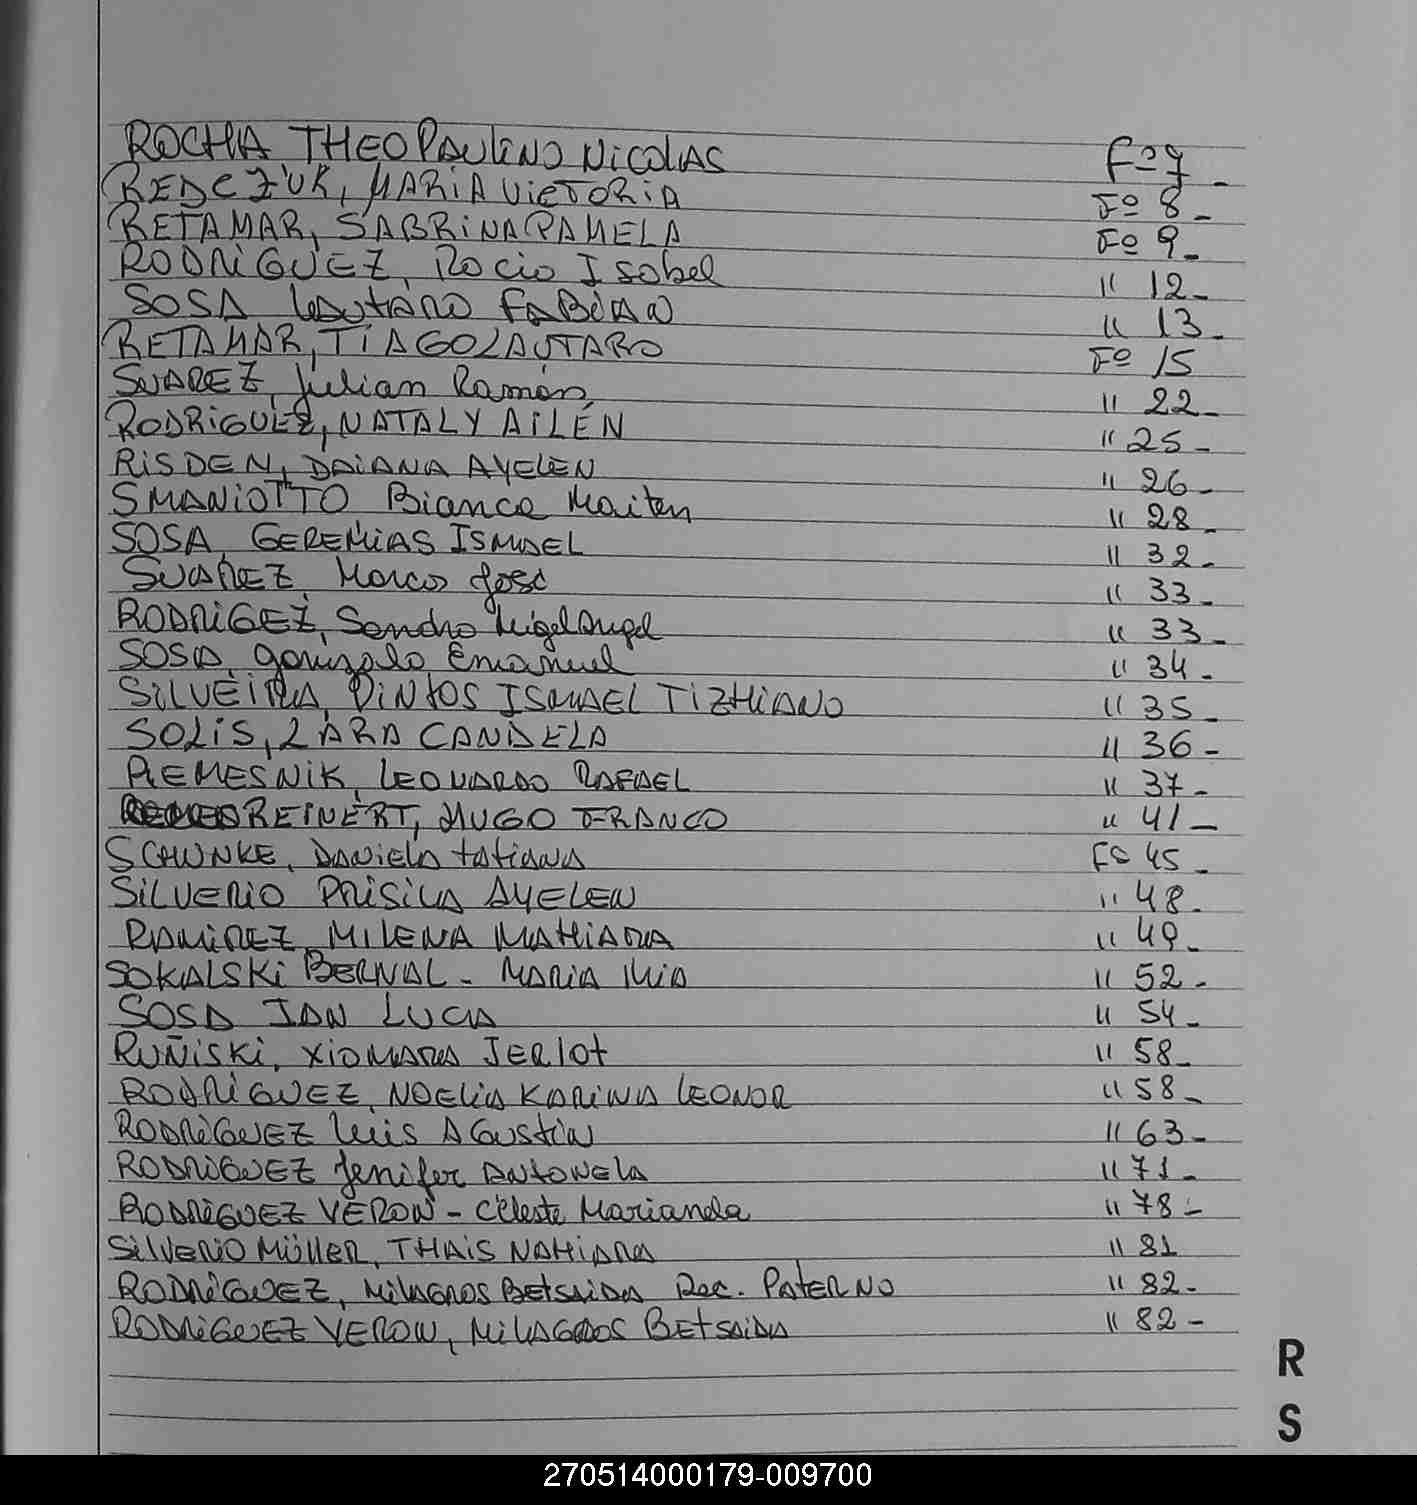 ROCHA THEO PAULINO NICOLAS Fº 7 -
REDCZUK, MARIA VICTORIA Fº 8 -
RETAMAR, SABRINA PAMELA Fº 9 -
RODRIGUEZ, Rocio Isabel " 12 -
SOSA Lautaro FABIAN " 13 -
RETAMAR, TIAGO LAUTARO Fº 15
SUAREZ, Julian Ramón " 22 -
RODRIGUEZ, NATALY AILÉN " 25 -
RISDEN, DAIANA AYELEN " 26 -
SMANIOTTO Bianca Maiten " 28 -
SOSA, GEREMIAS ISMAEL " 32 -
SUAREZ Marcos José " 33 -
RODRIGEZ, Sandro Migel Angel " 33 -
SOSA, Gonzalo Emanuel " 34 -
SILVEIRA, PINTOS ISMAEL TIZHIANO " 35 -
SOLIS, LARA CANDELA " 36 -
REMESNIK, LEONARDO RAFAEL " 37 -
REINERT, HUGO FRANCO " 41 -
SCHUNKE, DANIELA TATIANA Fº 45 -
SILVERIO PRISILA AYELEN " 48 -
RAMIREZ, MILENA NAHIARA " 49 -
SOKALSKI BERNAL - MARIA MIA " 52 -
SOSA IAN LUCA " 54 -
RUÑISKI, XIOMARA JERLOT " 58 -
RODRIGUEZ, NOELIA KARINA LEONOR " 58 -
RODRIGUEZ Luis AGUSTIN " 63 -
RODRIGUEZ Jenifer ANTONELA " 71 -
RODRIGUEZ VERON - Celeste Marianela " 78 -
SILVERIO MÜLLER, THAIS NAHIARA " 81
RODRIGUEZ, MILAGROS BETSAIDA Rec. PATERNO " 82 -
RODRIGUEZ VERON, MILAGROS BETSAIDA " 82 -
R
S
270514000179-009700